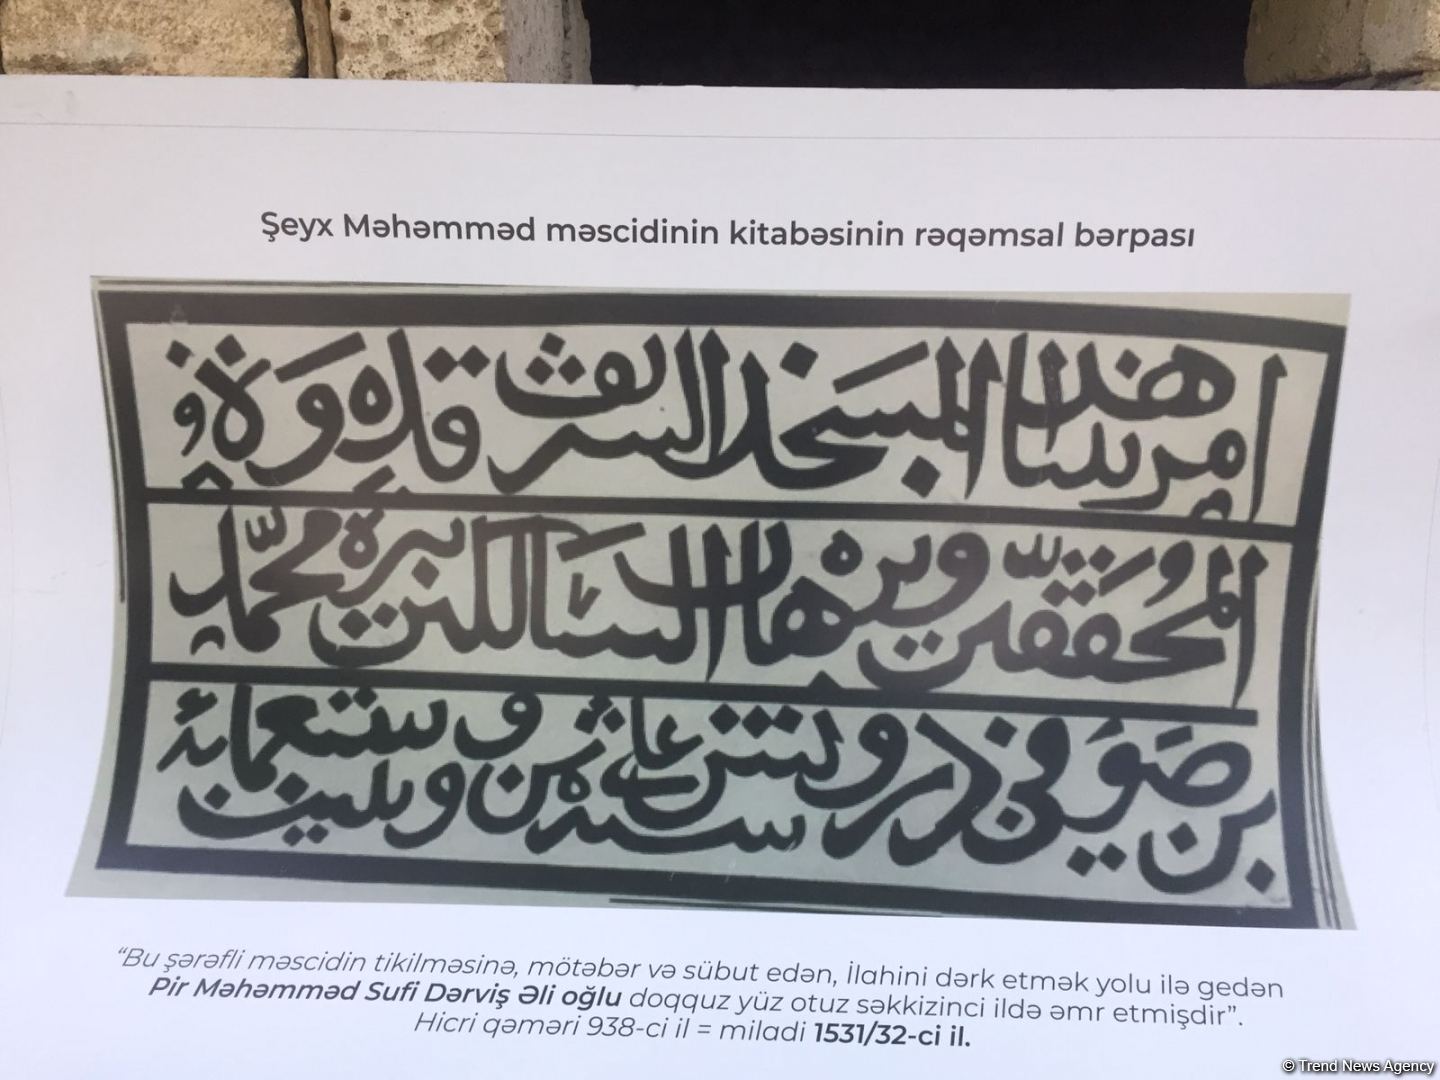 Şeyx Məhəmməd məscidinin kitabəsinin rəqəmsal bərpası
امر ببنا هذا المسجد الشريف قدوة
المحققين وبرهان السالكين پيره محمد
بن صوفى درويش على سنه ثمن و ثلثين و تسعمائه
“Bu şərəfli məscidin tikilməsinə, mötəbər və sübut edən, İlahini dərk etmək yolu ilə gedən
Pir Məhəmməd Sufi Dərviş Əli oğlu doqquz yüz otuz səkkizinci ildə əmr etmişdir”.
Hicri qəməri 938-ci il = miladi 1531/32-ci il.
© Trend News Agency